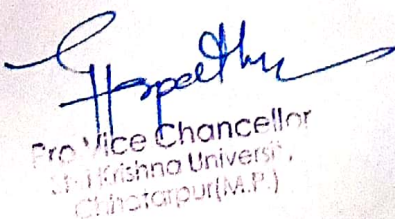 Pro Vice Chancellor
Shri Krishna University,
Chhatarpur(M.P.)